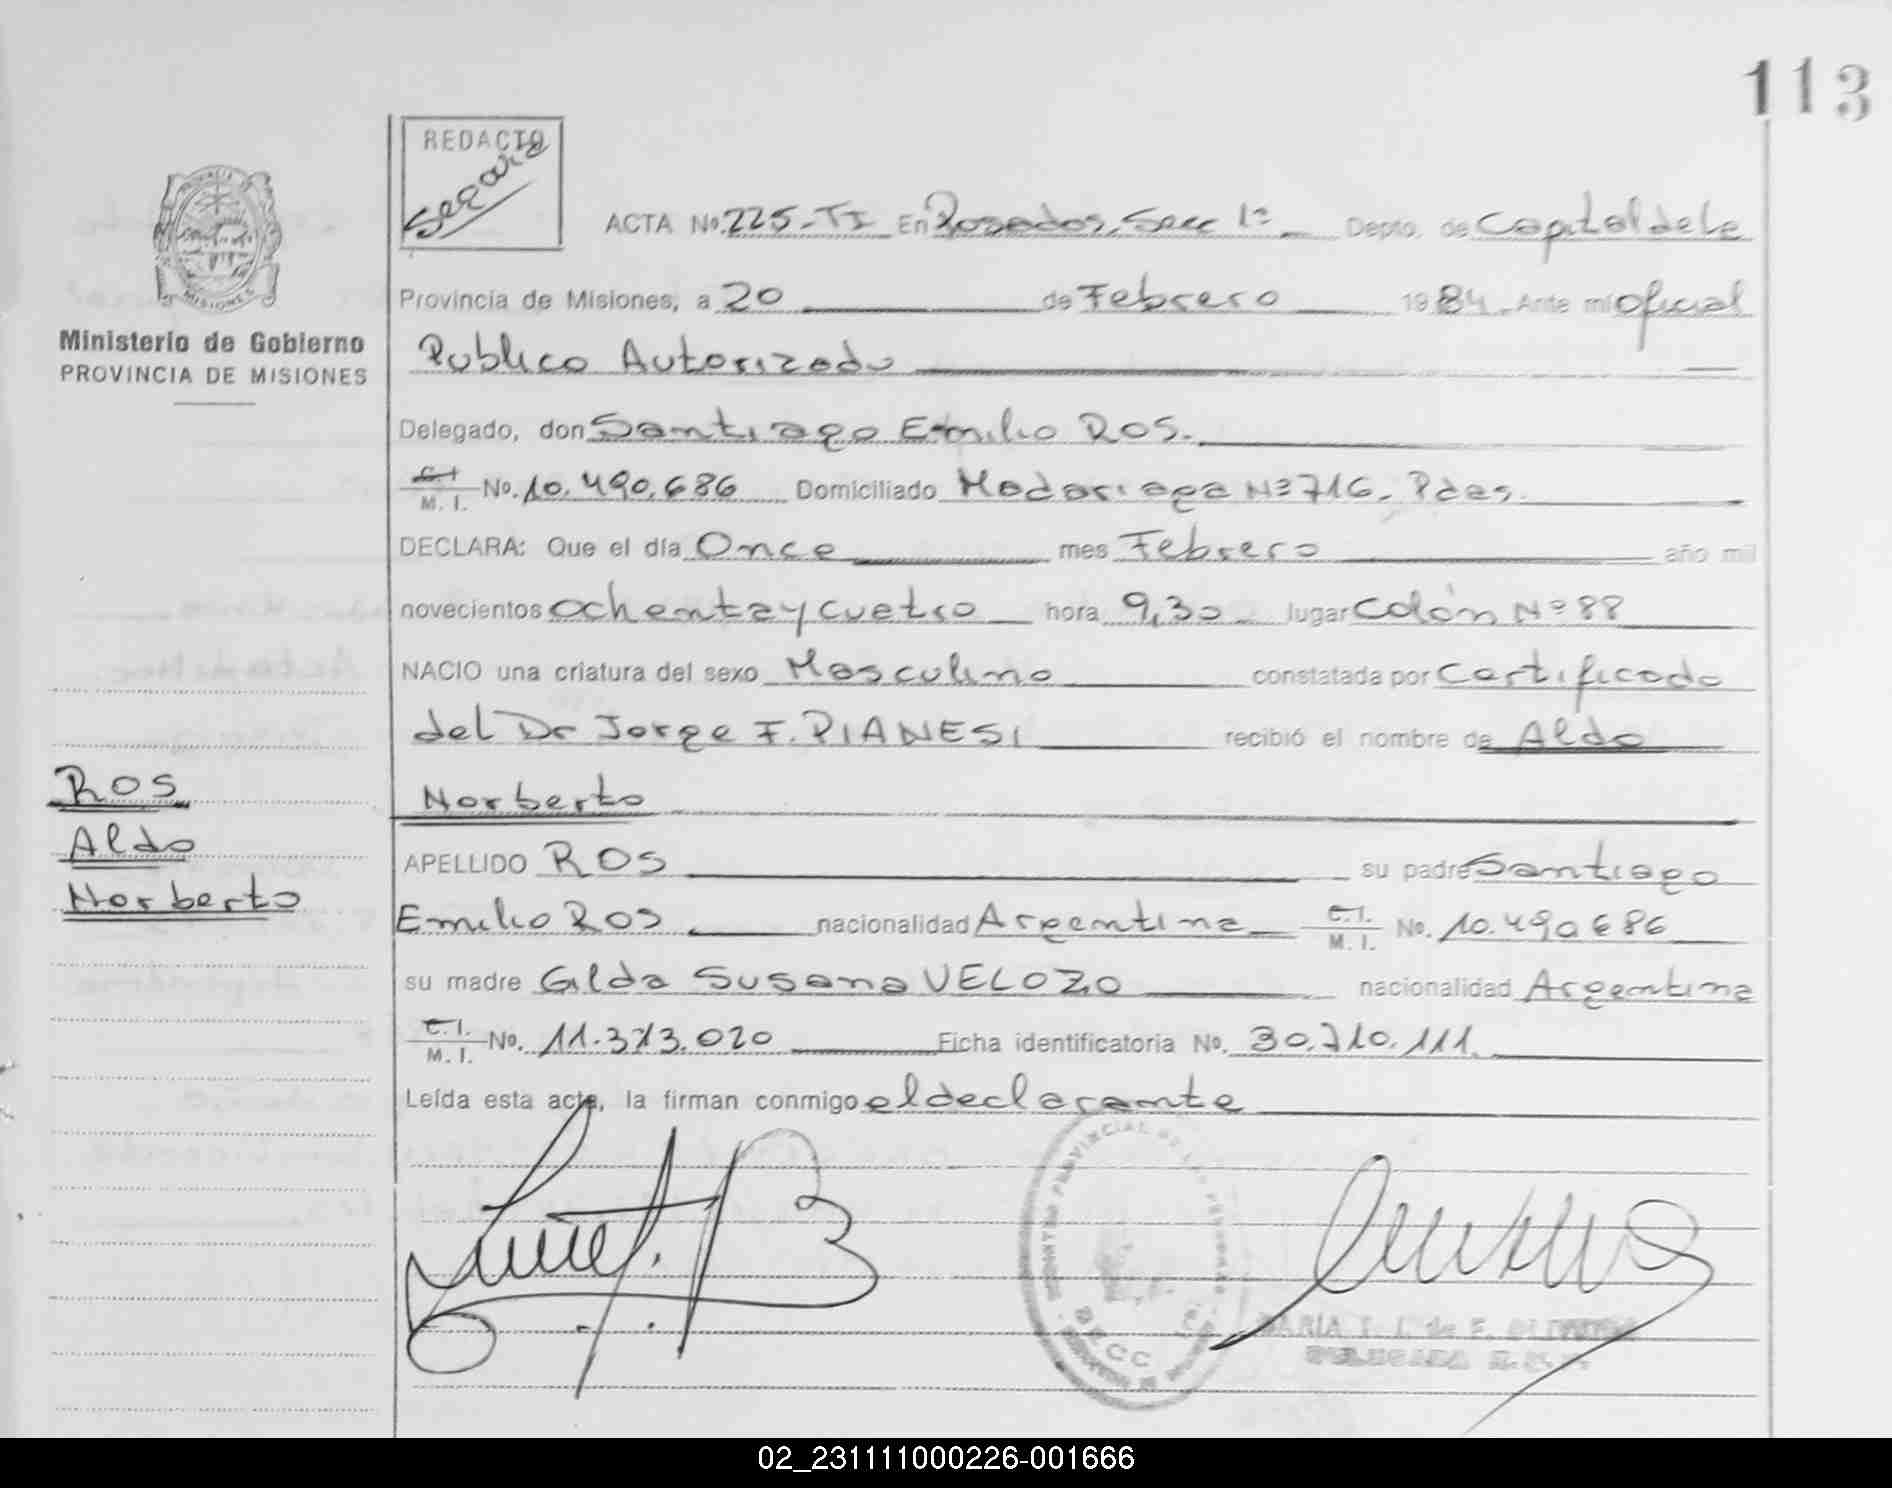 113
REDACTO
ACTA No. 225-TI En Posadas, Secc 1ª Depto. de Capital de la
Provincia de Misiones, a 20 de Febrero 1984. Ante mi Oficial
Ministerio de Gobierno
PROVINCIA DE MISIONES
Publico Autorizado
Delegado, don Santiago Emilio ROS.
C.I. M. I. No. 10.490.686 Domiciliado Madariaga Nº 716. Pdas.
DECLARA: Que el día Once mes Febrero año mil
novecientos ochenta y cuatro hora 9,30 lugar Colón Nº 88
NACIO una criatura del sexo Masculino constatada por Certificado
del Dr Jorge F. PIANESI recibió el nombre de Aldo
Norberto
ROS
Aldo
Norberto
APELLIDO ROS su padre Santiago
Emilio ROS nacionalidad Argentina C.I. M. I. No. 10.490686
su madre Gilda Susana VELOZO nacionalidad Argentina
C.I. M. I. No. 11.373.020 Ficha identificatoria No. 30.710.111.
Leída esta acta, la firman conmigo el declarante
02_231111000226-001666